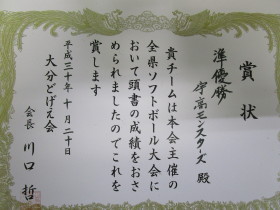 賞状
準優勝
宇高モンスターズ 殿
貴チームは本会主催の
全県ソフトボール大会に
おいて頭書の成績をおさ
められましたのでこれを
賞します
平成三十年十月二十日
大分どげえ会
会長 川口 哲